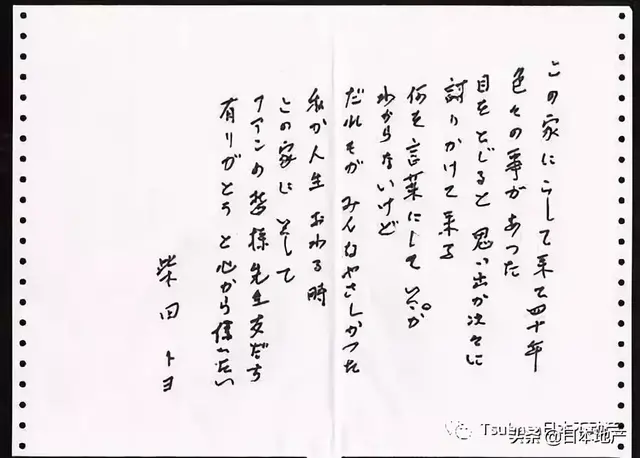 この家にこして来て四十年
色々の事があった
目をとじると 思い出が次々に
討りかけて来る
何を言葉にして いゝか
わからないけど
だれもが みんなやさしかった
私が人生 おわる時
この家に そして
ファンの皆様 先生 友だち
有りがとう と心から
柴田トヨ
Tsubasa日本不动产
头条 @日本地产